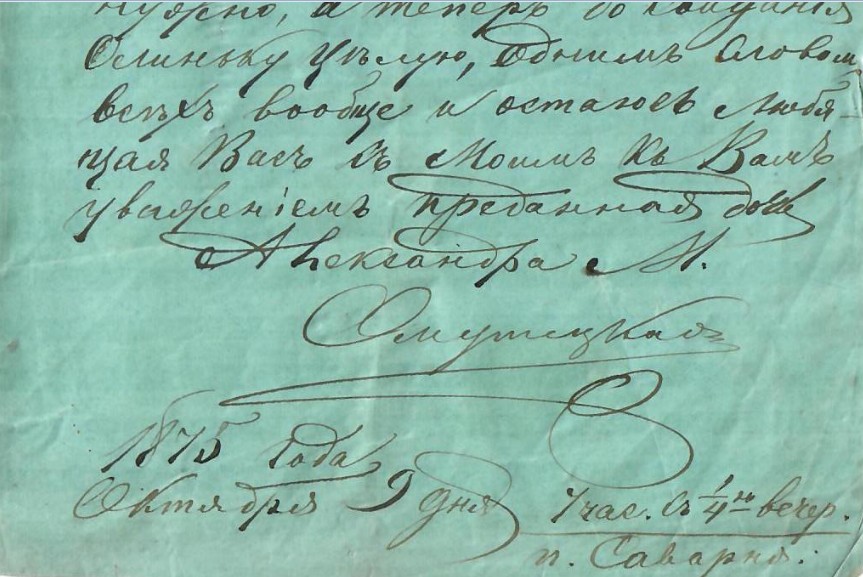 нужно, а теперъ до свиданія
Олиньку цѣлую, Однимъ Словомъ
всѣхъ вообще и остаюсь Любя-
щая Васъ съ Моимъ къ Вамъ
уваженіемъ преданная дочь
Александра М.
Омутецкая
1875 года
Октября 9 дня 7 час. съ 1/4ю вечер.
п. Саварна.